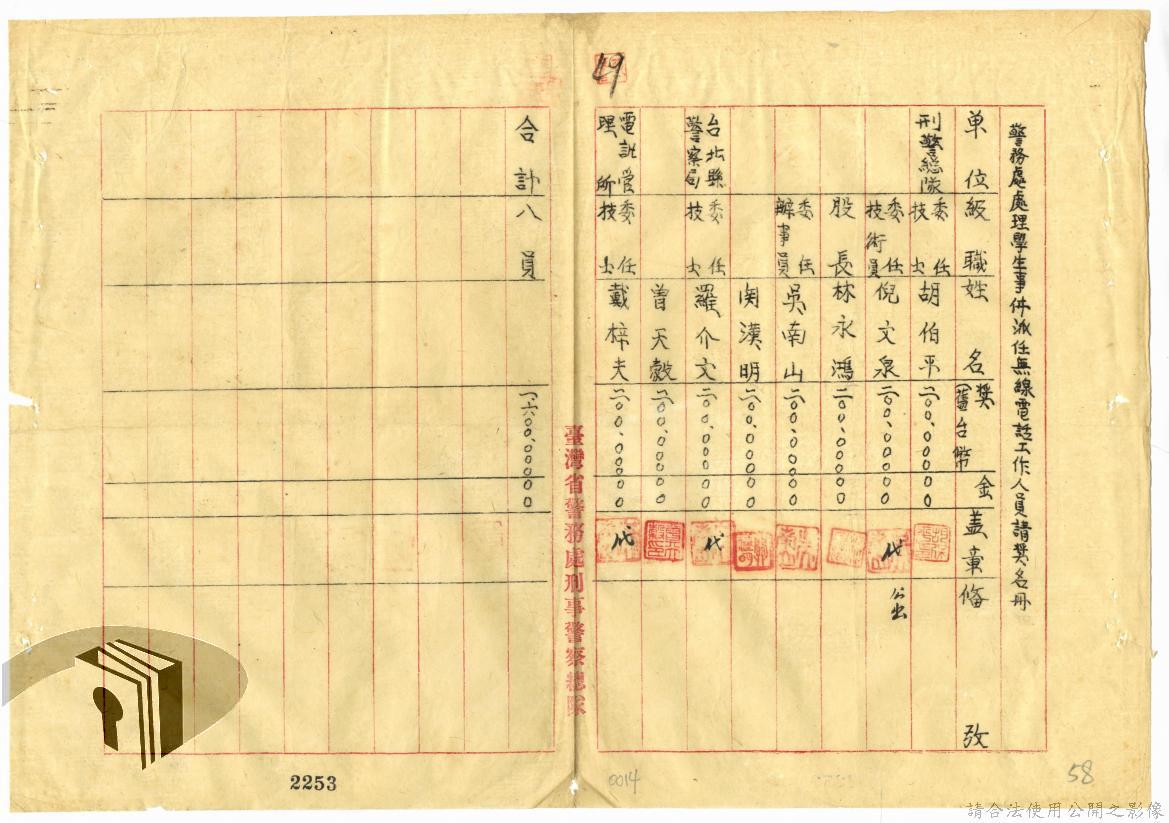 警務處處理學生事件派任無線電話工作人員請獎名冊
單位 級職 姓名 獎金(舊台幣) 盖章 俻攷
刑警總隊 委任技士 胡伯平 二〇〇,〇〇〇〇〇
委任技術員 倪文泉 二〇〇,〇〇〇〇〇 代 公出
股長 林永鴻 二〇〇,〇〇〇〇〇
委任辦事員 吳南山 二〇〇,〇〇〇〇〇
関漢明 二〇〇,〇〇〇〇〇
台北縣警察局 委任技士 羅介文 二〇〇,〇〇〇〇〇 代
曾天毅 二〇〇,〇〇〇〇〇
電訊管理所 委任技士 戴梓夫 二〇〇,〇〇〇〇〇 代
臺灣省警務處刑事警察總隊
合計 八員 一六〇〇,〇〇〇〇〇
19
2253
0014
58
請合法使用公開之影像